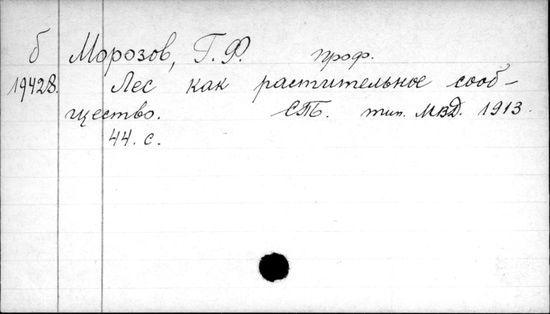 б Морозов, Г. Ф. проф.
19428. Лес как растительное сооб-
щество. СПБ. тип. МВД. 1913.
44. с.